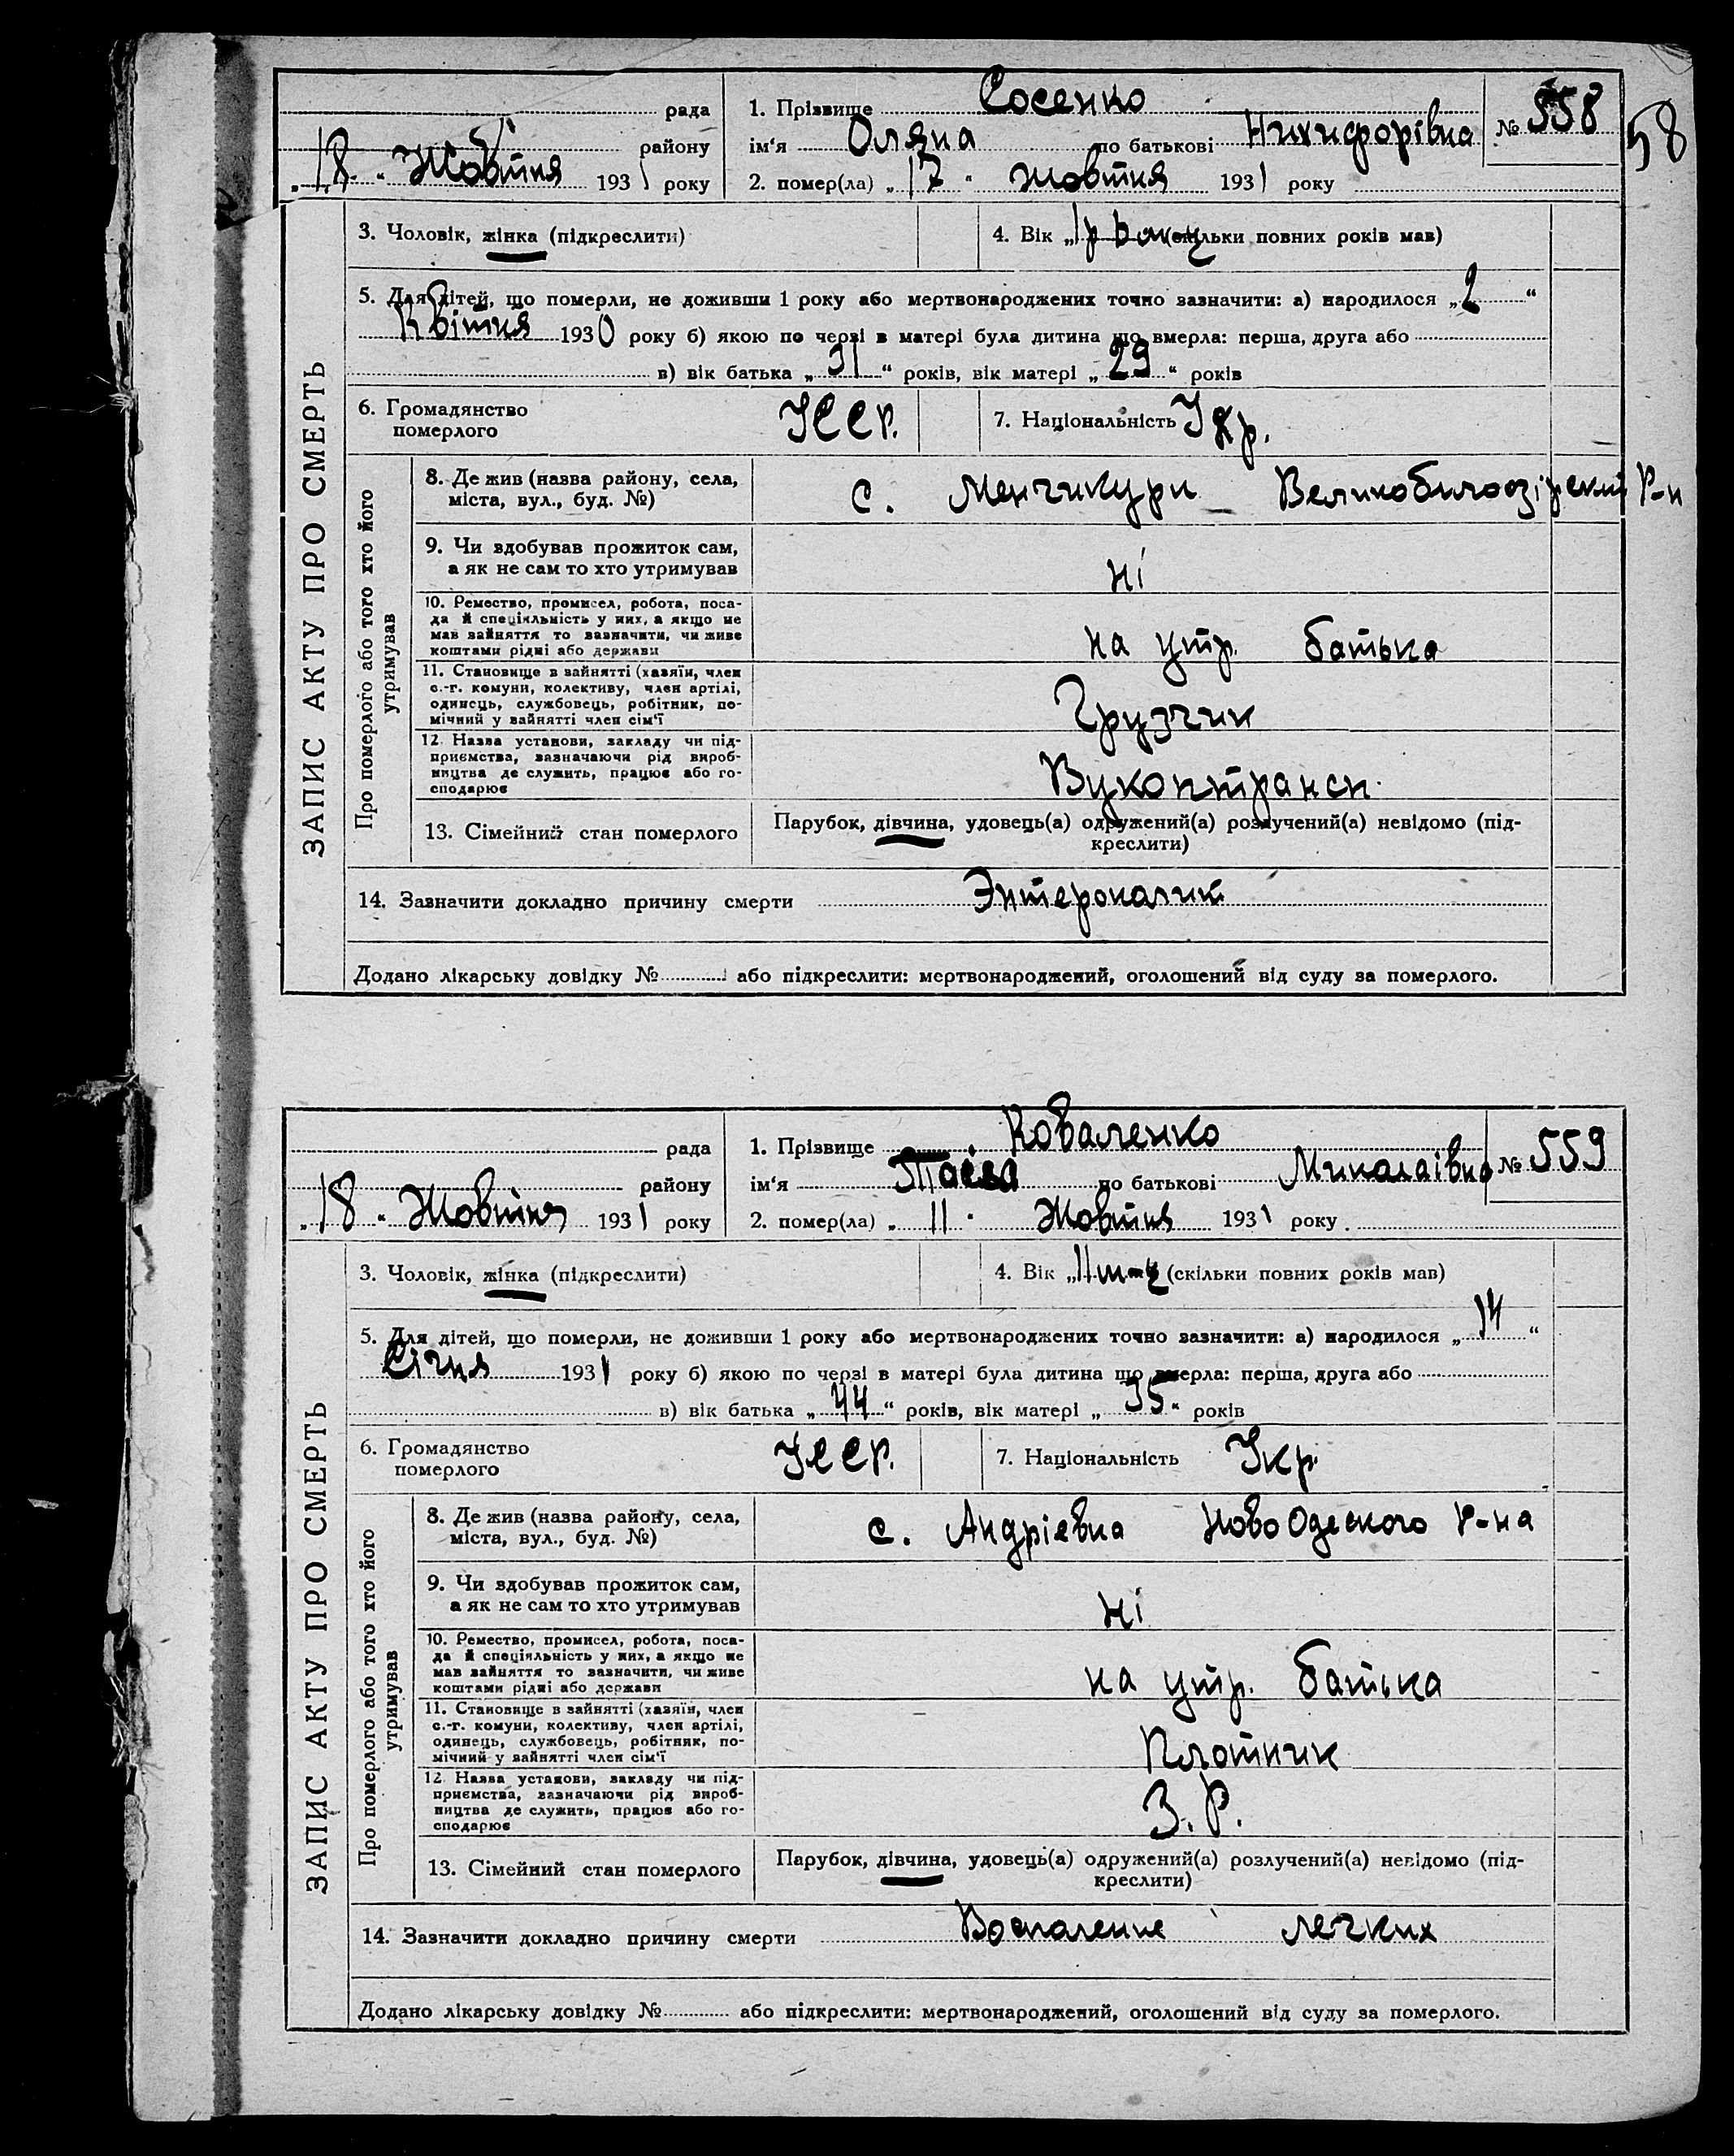 рада
1. Прізвище Сосенко
№ 558
58
району
ім'я Оляна по батькові Никифорівна
„18" Жовтня 1931 року
2. помер(ла) „17" жовтня 1931 року
ЗАПИС АКТУ ПРО СМЕРТЬ
3. Чоловік, жінка (підкреслити)
4. Вік „1р (скільки повних років мав)
5. Для дітей, що померли, не доживши 1 року або мертвонароджених точно зазначити: а) народилося „2"
Квітня 1930 року б) якою по черзі в матері була дитина що вмерла: перша, друга або
в) вік батька „31" років, вік матері „29" років
6. Громадянство
померлого
УССР.
7. Національність Укр.
Про померлого або того хто його
утримував
8. Де жив (назва району, села,
міста, вул., буд. №)
с. Менчикури Великобилозірский Р-н
9. Чи здобував прожиток сам,
а як не сам то хто утримував
ні
10. Ремество, промисел, робота, поса-
да й спеціяльність у них, а якщо не
мав зайняття то зазначити, чи живе
коштами рідні або держави
на утр. батька
11. Становище в зайнятті (хазяїн, член
с.-г. комуни, колективу, член артілі,
одинець, службовець, робітник, по-
мічний у зайнятті член сім'ї
Грузчик
12. Назва установи, закладу чи під-
приємства, зазначаючи рід вироб-
ництва де служить, працює або го-
сподарює
Вукоптрансп.
13. Сімейний стан померлого
Парубок, дівчина, удовець(а) одружений(а) розлучений(а) невідомо (під-
креслити)
14. Зазначити докладно причину смерти Энтероколит
Додано лікарську довідку № або підкреслити: мертвонароджений, оголошений від суду за померлого.
рада
1. Прізвище Коваленко
№ 559
району
ім'я по батькові Миколаівна
„18" Жовтня 1931 року
2. помер(ла) „11" Жовтня 1931 року
ЗАПИС АКТУ ПРО СМЕРТЬ
3. Чоловік, жінка (підкреслити)
4. Вік (скільки повних років мав)
5. Для дітей, що померли, не доживши 1 року або мертвонароджених точно зазначити: а) народилося „14"
Січня 1931 року б) якою по черзі в матері була дитина що вмерла: перша, друга або
в) вік батька „44" років, вік матері „35" років
6. Громадянство
померлого
УССР.
7. Національність Укр.
Про померлого або того хто його
утримував
8. Де жив (назва району, села,
міста, вул., буд. №)
с. Андріевка Ново Одеского Р-на
9. Чи здобував прожиток сам,
а як не сам то хто утримував
ні
10. Ремество, промисел, робота, поса-
да й спеціяльність у них, а якщо не
мав зайняття то зазначити, чи живе
коштами рідні або держави
на утр. батька
11. Становище в зайнятті (хазяїн, член
с.-г. комуни, колективу, член артілі,
одинець, службовець, робітник, по-
мічний у зайнятті член сім'ї
Плотник
12. Назва установи, закладу чи під-
приємства, зазначаючи рід вироб-
ництва де служить, працює або го-
сподарює
З. Р.
13. Сімейний стан померлого
Парубок, дівчина, удовець(а) одружений(а) розлучений(а) невідомо (під-
креслити)
14. Зазначити докладно причину смерти Воспаление легких
Додано лікарську довідку № або підкреслити: мертвонароджений, оголошений від суду за померлого.